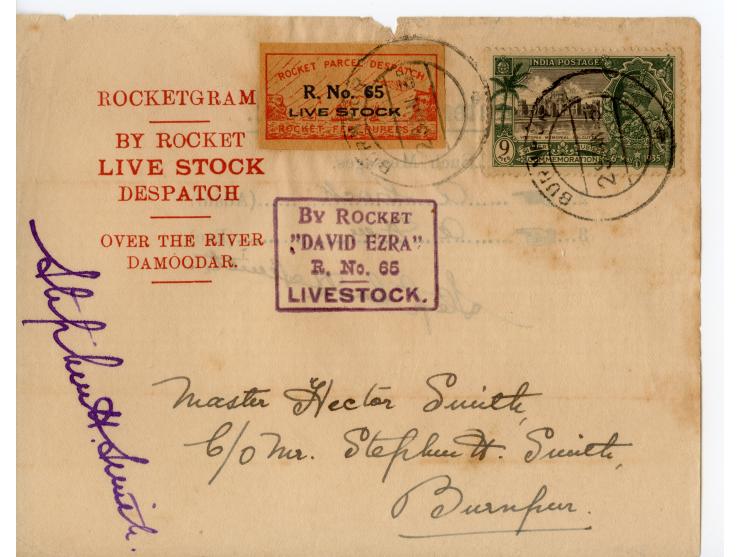 ROCKETGRAM
BY ROCKET
LIVE STOCK
DESPATCH
OVER THE RIVER
DAMOODAR.
ROCKET PARCEL DESPATCH
R. No. 65
LIVE STOCK.
ROCKET FEE RUPEE
INDIA POSTAGE
9
COMMEMORATION 6TH MAY 1935
BURNPUR
BURNPUR
BY ROCKET
"DAVID EZRA"
R. No. 65
LIVESTOCK.
Stephen H. Smith.
Master Hector Smith,
C/o Mr. Stephen H. Smith,
Burnpur.